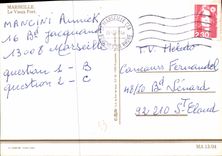 MARSEILLE
Le Vieux Port
MANCINI Annick
16 Bd Jacquand
13008 Marseille
question 1 - B
question 2 - C
2,30
T.V. Hebdo
Concours Fernandel
48/50 Bd Sénard
92210 St Cloud
MA 13/04